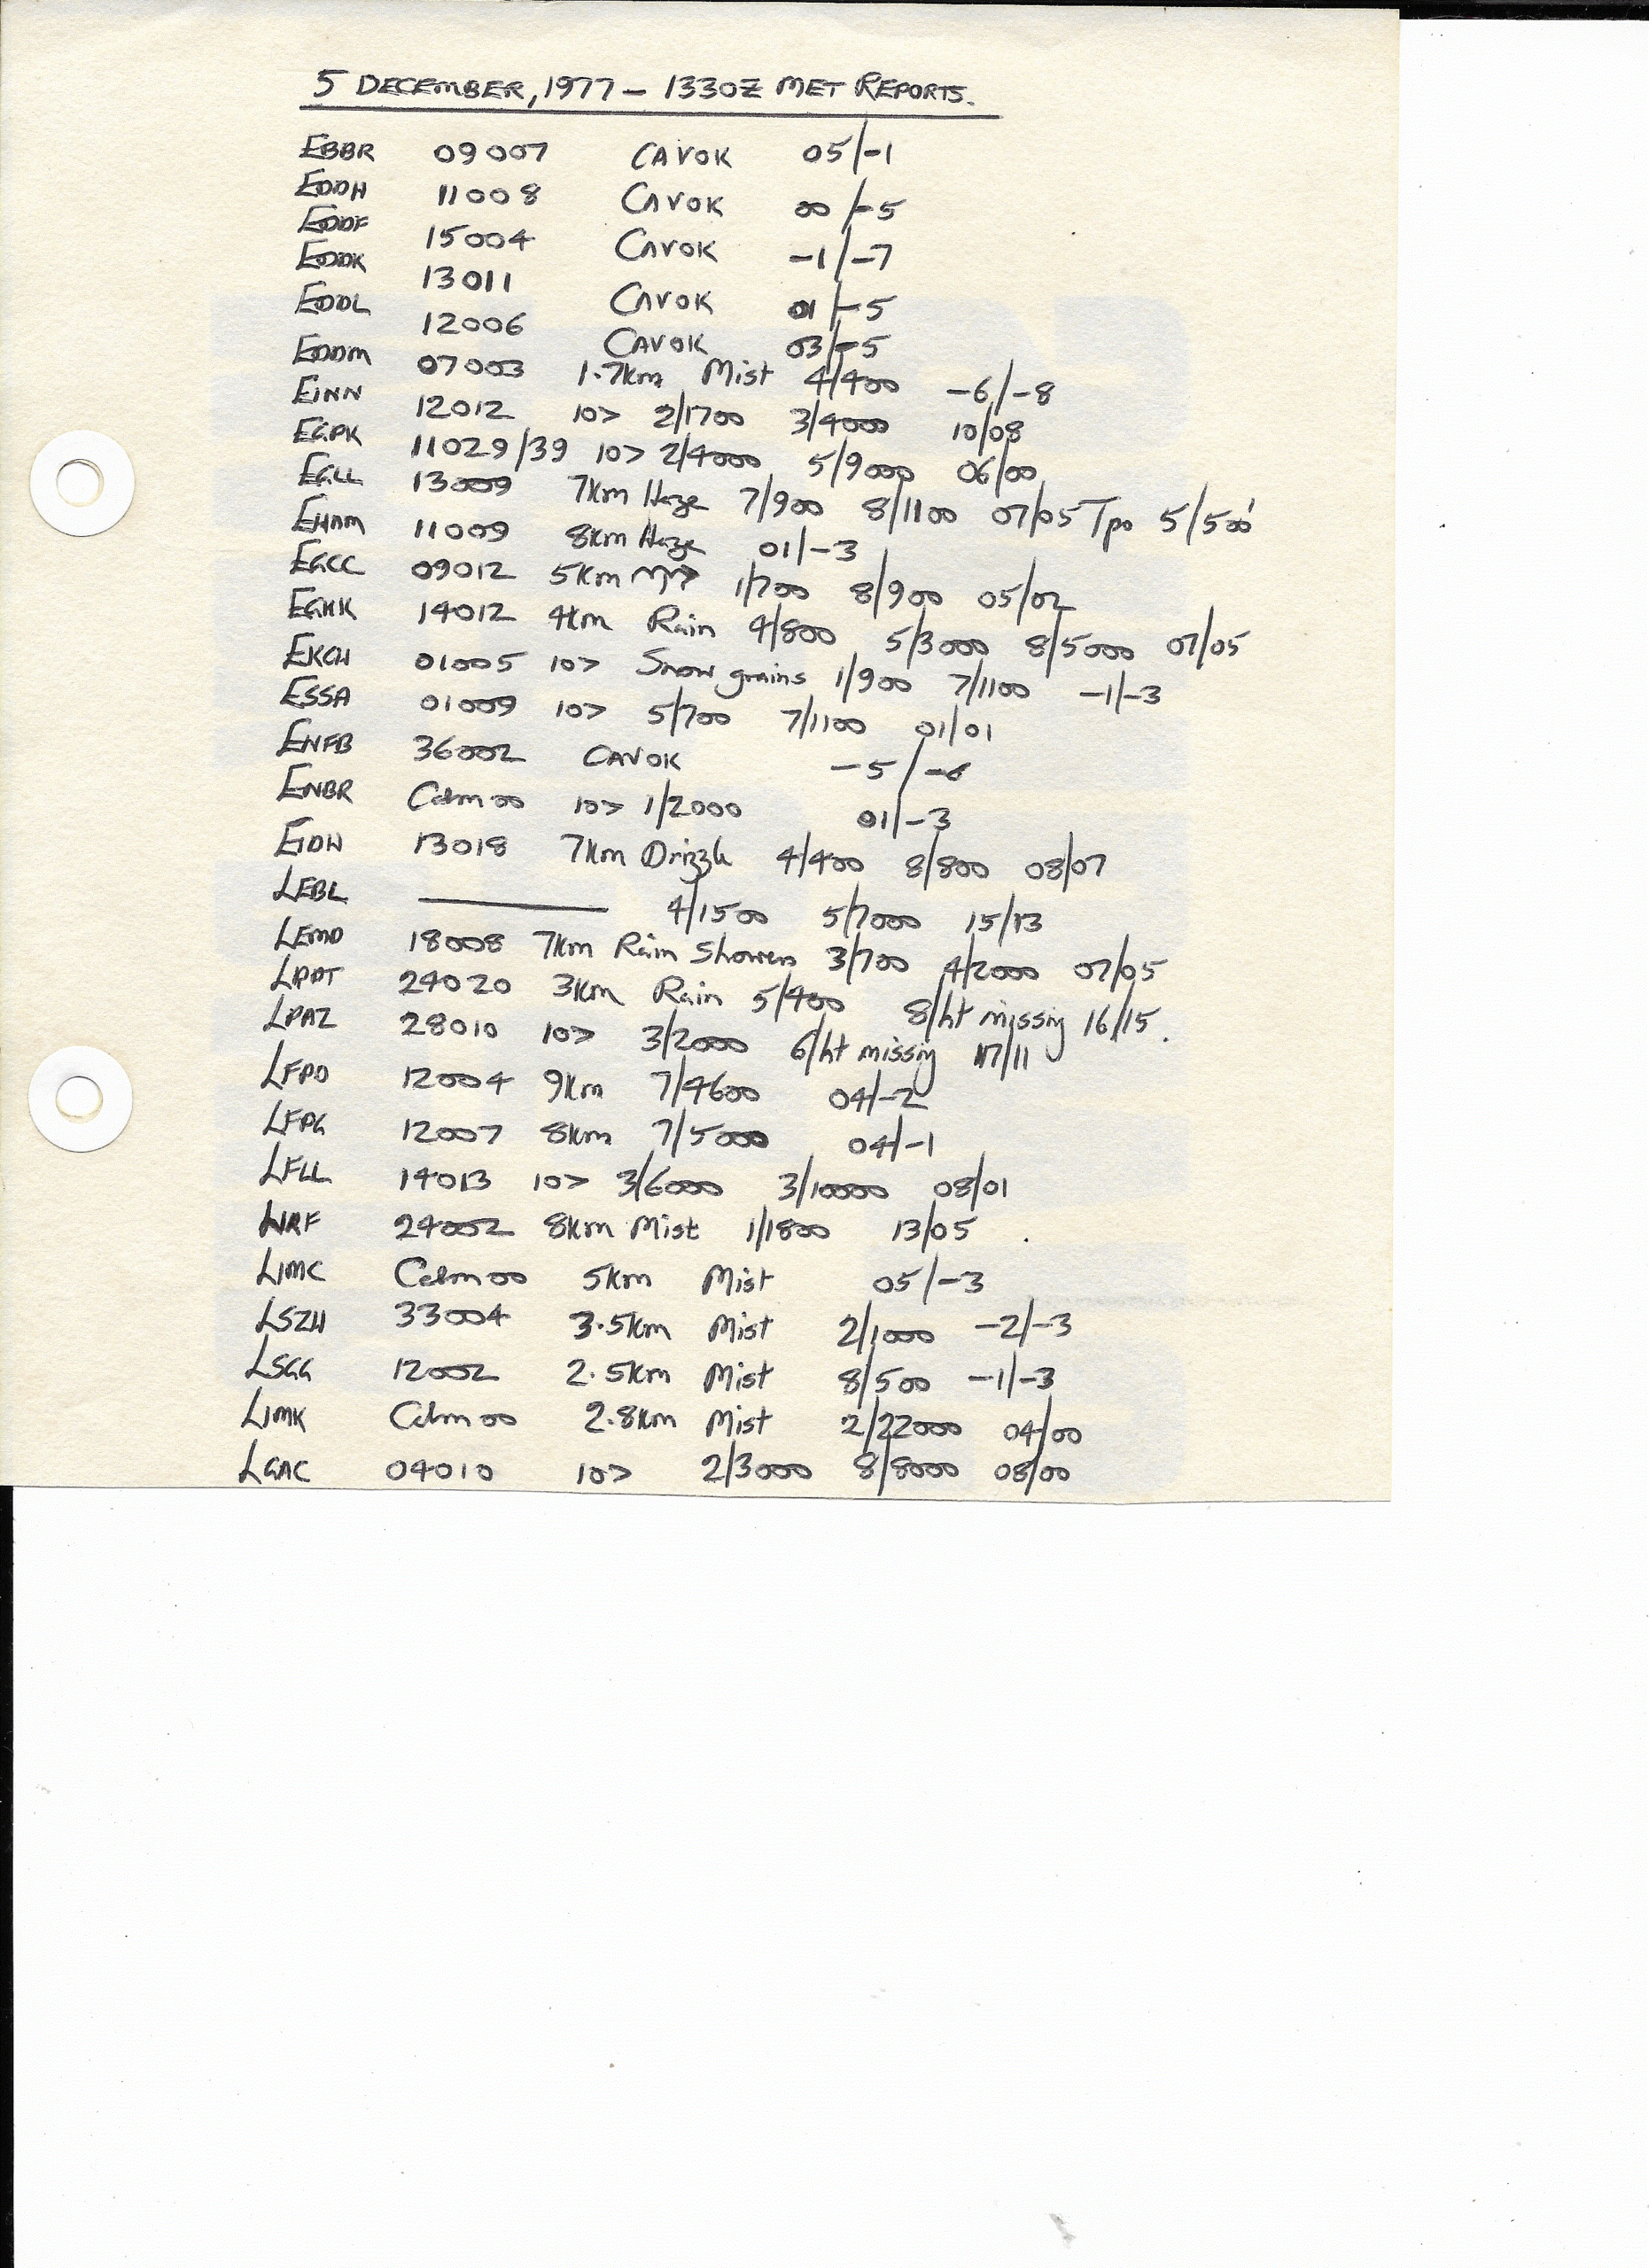 5 DECEMBER, 1977 – 1330Z MET REPORTS.
EBBR 09007 CAVOK 05/-1
EDDH 11008 CAVOK 00/-5
EDDF 15004 CAVOK -1/-7
EDDK 13011 CAVOK 01/-5
EDDL 12006 CAVOK 03/-5
EDDM 07003 1.7km Mist 4/400 -6/-8
EINN 12012 10> 2/1700 3/4000 10/08
EGPK 11029/39 10> 2/4000 5/9000 06/00
EGLL 13009 7km Haze 7/900 8/1100 07/05 Tpo 5/500'
EHAM 11009 8km Haze 01/-3
EGCC 09012 5km 1/700 8/900 05/02
EGKK 14012 4km Rain 4/800 5/3000 8/5000 07/05
EKCH 01005 10> Snow grains 1/900 7/1100 -1/-3
ESSA 01009 10> 5/700 7/1100 01/01
ENFB 36002 CAVOK -5/-6
ENBR Calm 00 10> 1/2000 01/-3
EIDW 13018 7km Drizzle 4/400 8/800 08/07
LEBL ——— 4/1500 5/7000 15/13
LEMD 18008 7km Rain Showers 3/700 4/2000 07/05
LPPT 24020 3km Rain 5/400 8/ht missing 16/15.
LPAZ 28010 10> 3/2000 6/ht missing 17/11
LFPO 12004 9km 7/4600 04/-2
LFPG 12007 8km 7/5000 04/-1
LFLL 14013 10> 3/6000 3/10000 08/01
LIRF 24002 8km Mist 1/1800 13/05
LIMC Calm 00 5km Mist 05/-3
LSZH 33004 3.5km Mist 2/1000 -2/-3
LSGG 12002 2.5km Mist 8/500 -1/-3
LIMK Calm 00 2.8km Mist 2/22000 04/00
LGAC 04010 10> 2/3000 8/8000 08/00